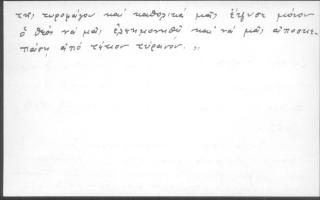 τῆς τυρομάγου καὶ καθολικὰ μᾶς ἔγδυσε μόνον
ὁ θεὸς νὰ μᾶς ἐλεημονηθῇ καὶ νὰ μᾶς ἀποσκε-
πάσῃ ἀπὸ τέτοιον τύρανον. „